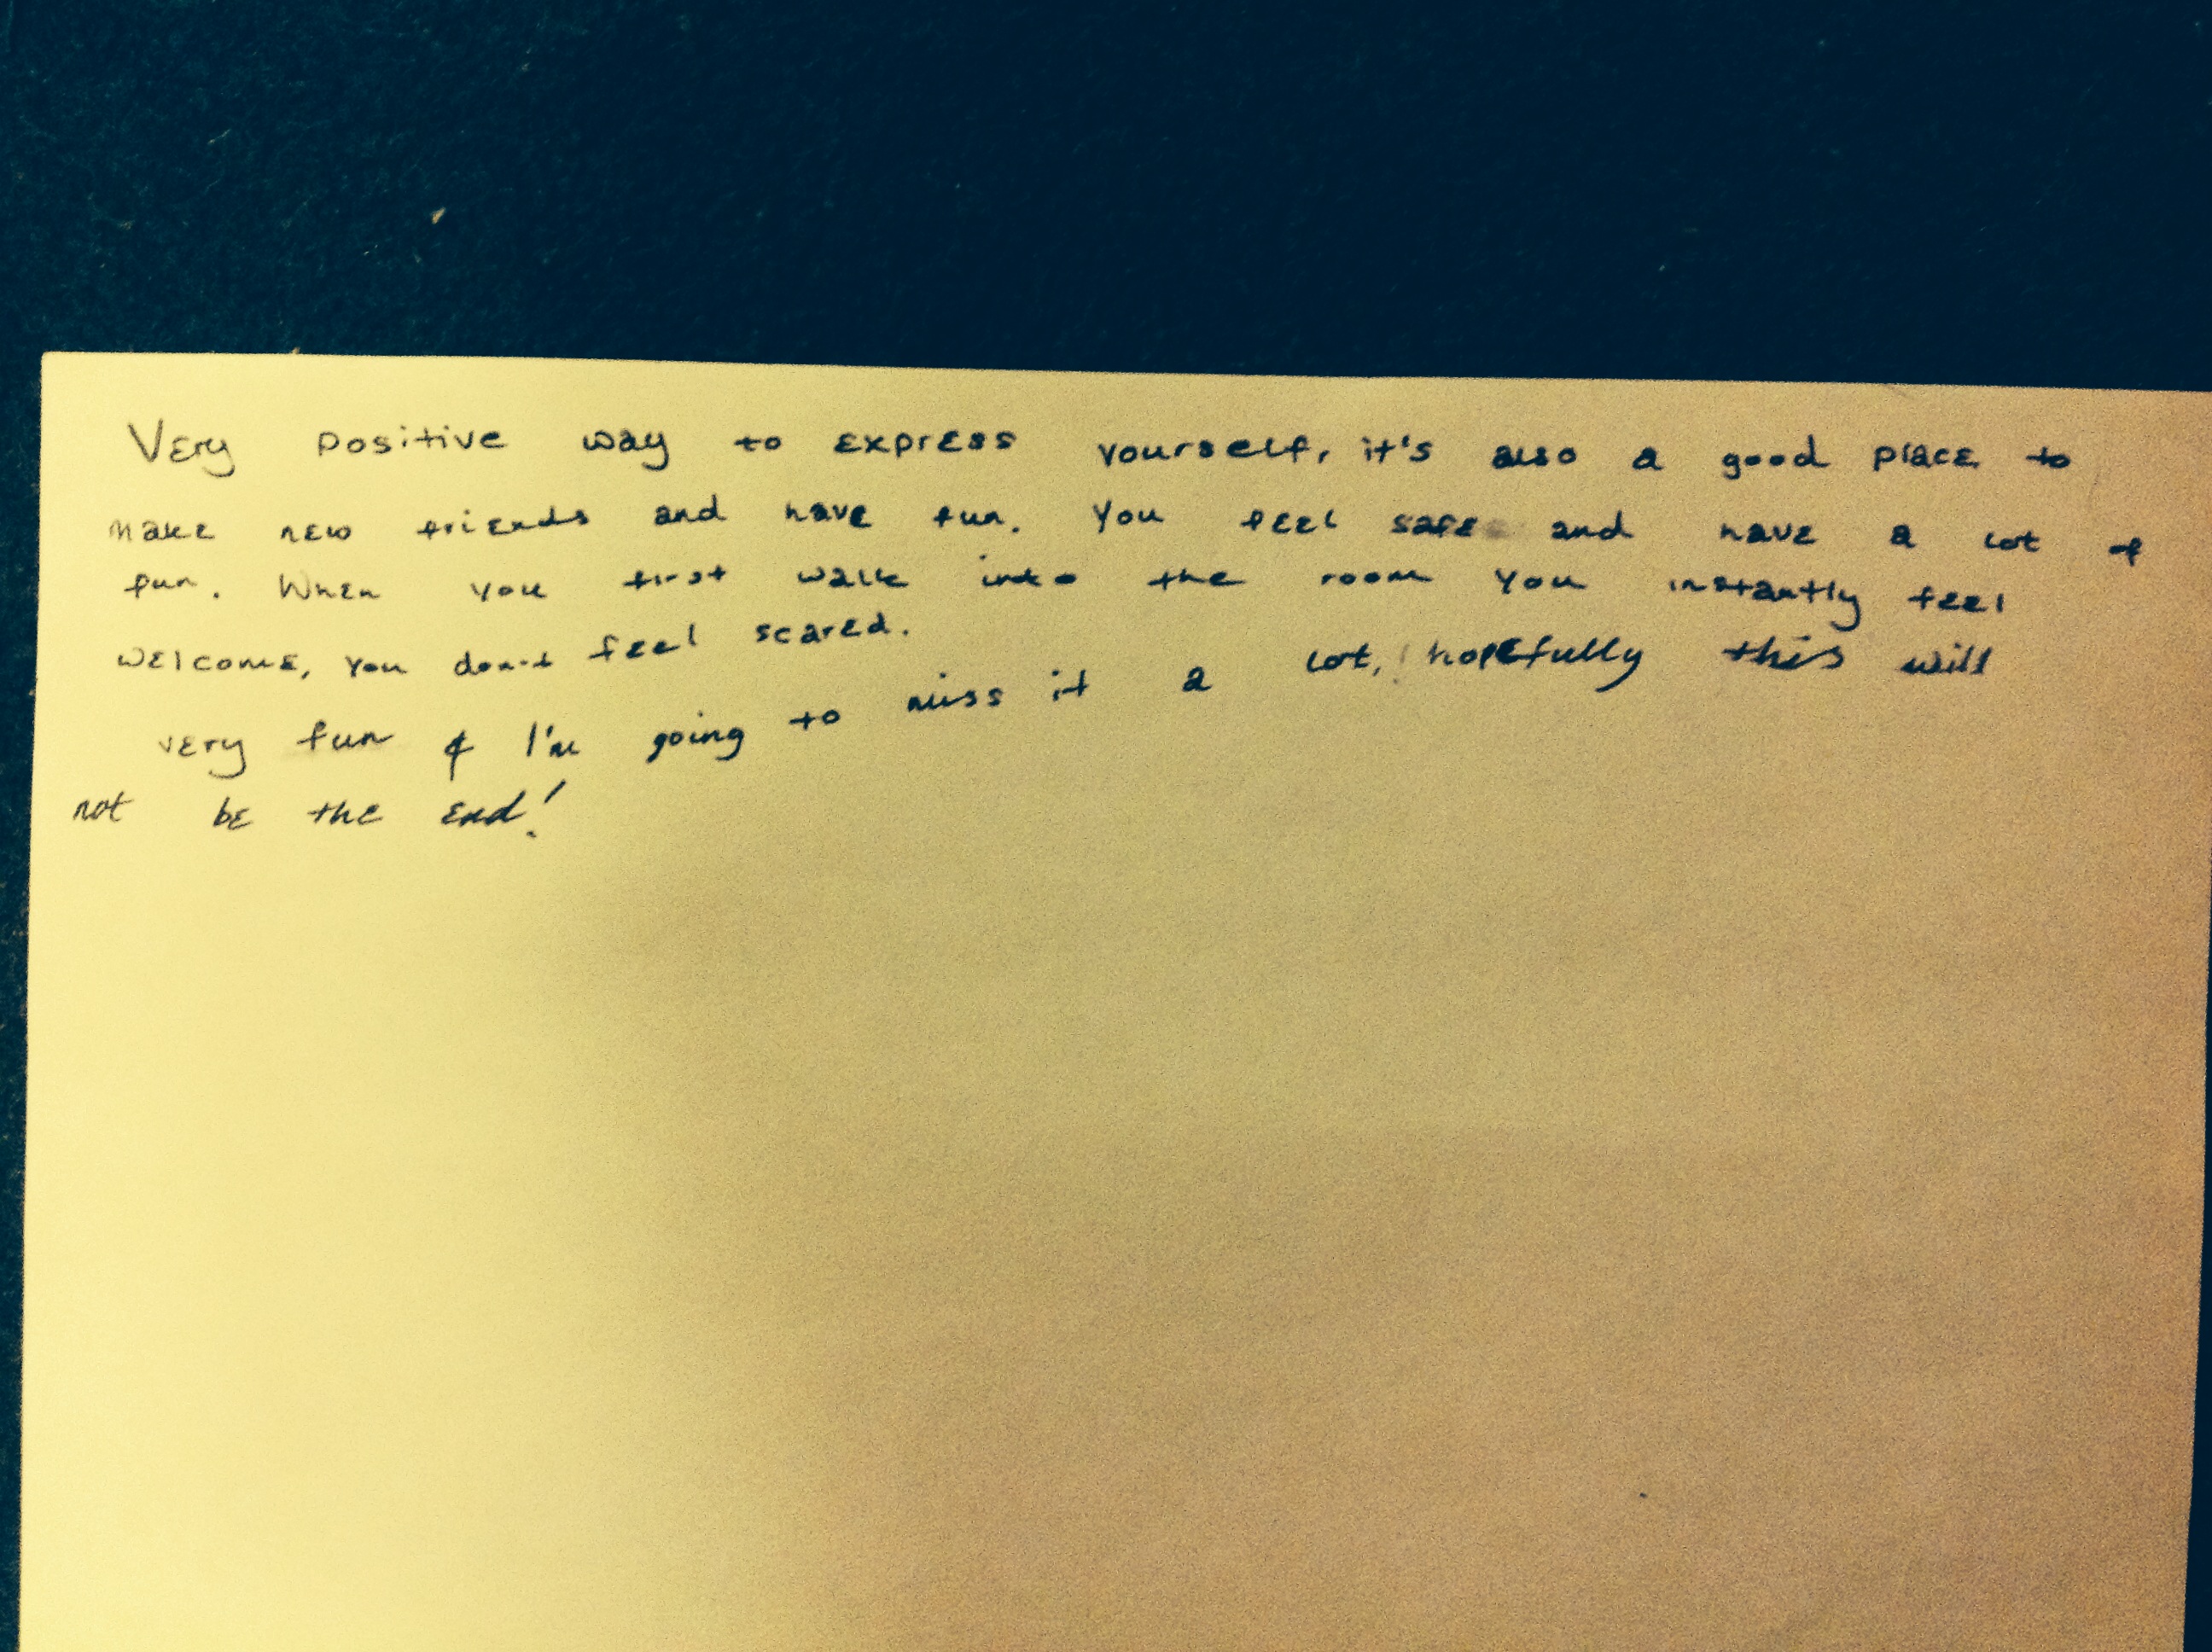 Very positive way to express yourself, it's also a good place to
make new friends and have fun. You feel safe and have a lot of
fun. When you first walk into the room you instantly feel
welcome, you don't feel scared.
very fun & I'm going to miss it a lot, hopefully this will
not be the end!